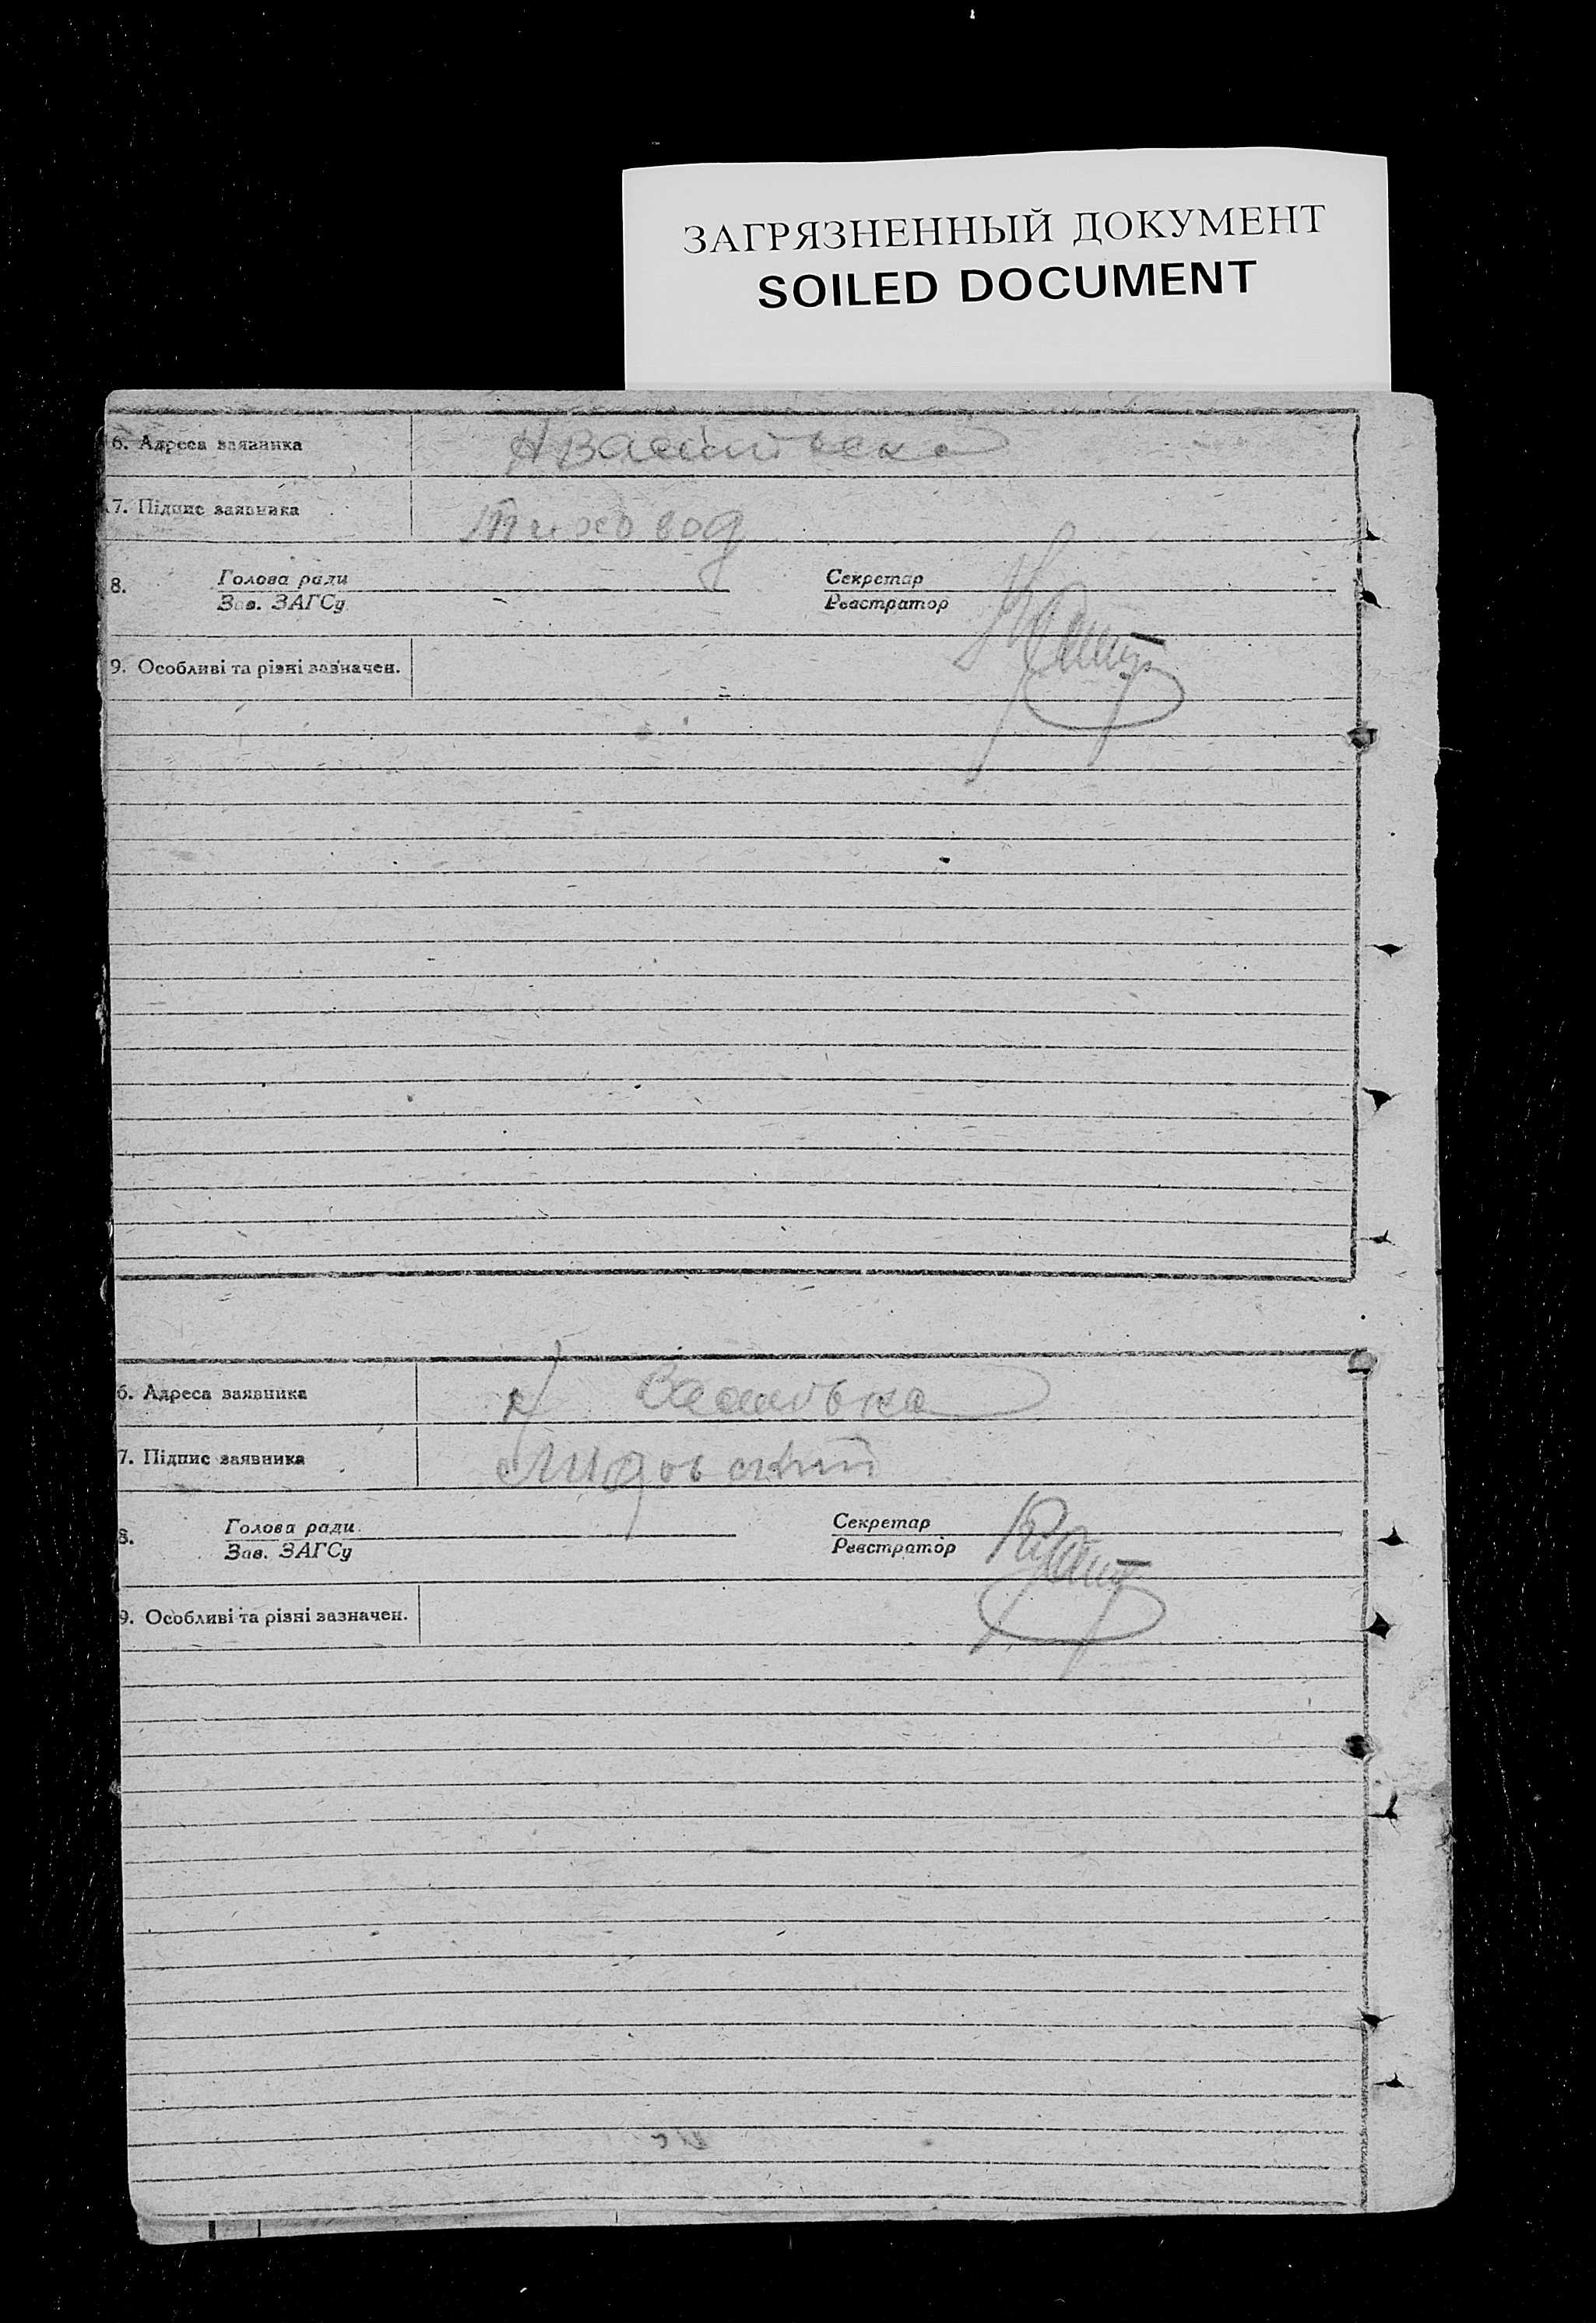 ЗАГРЯЗНЕННЫЙ ДОКУМЕНТ
SOILED DOCUMENT
6. Адреса заявника
7. Підпис заявника Тиховод
8. Голова ради Секретар
Зав. ЗАГСу Реєстратор
9. Особливі та різні зазначен.
6. Адреса заявника
7. Підпис заявника
8. Голова ради Секретар
Зав. ЗАГСу Реєстратор
9. Особливі та різні зазначен.